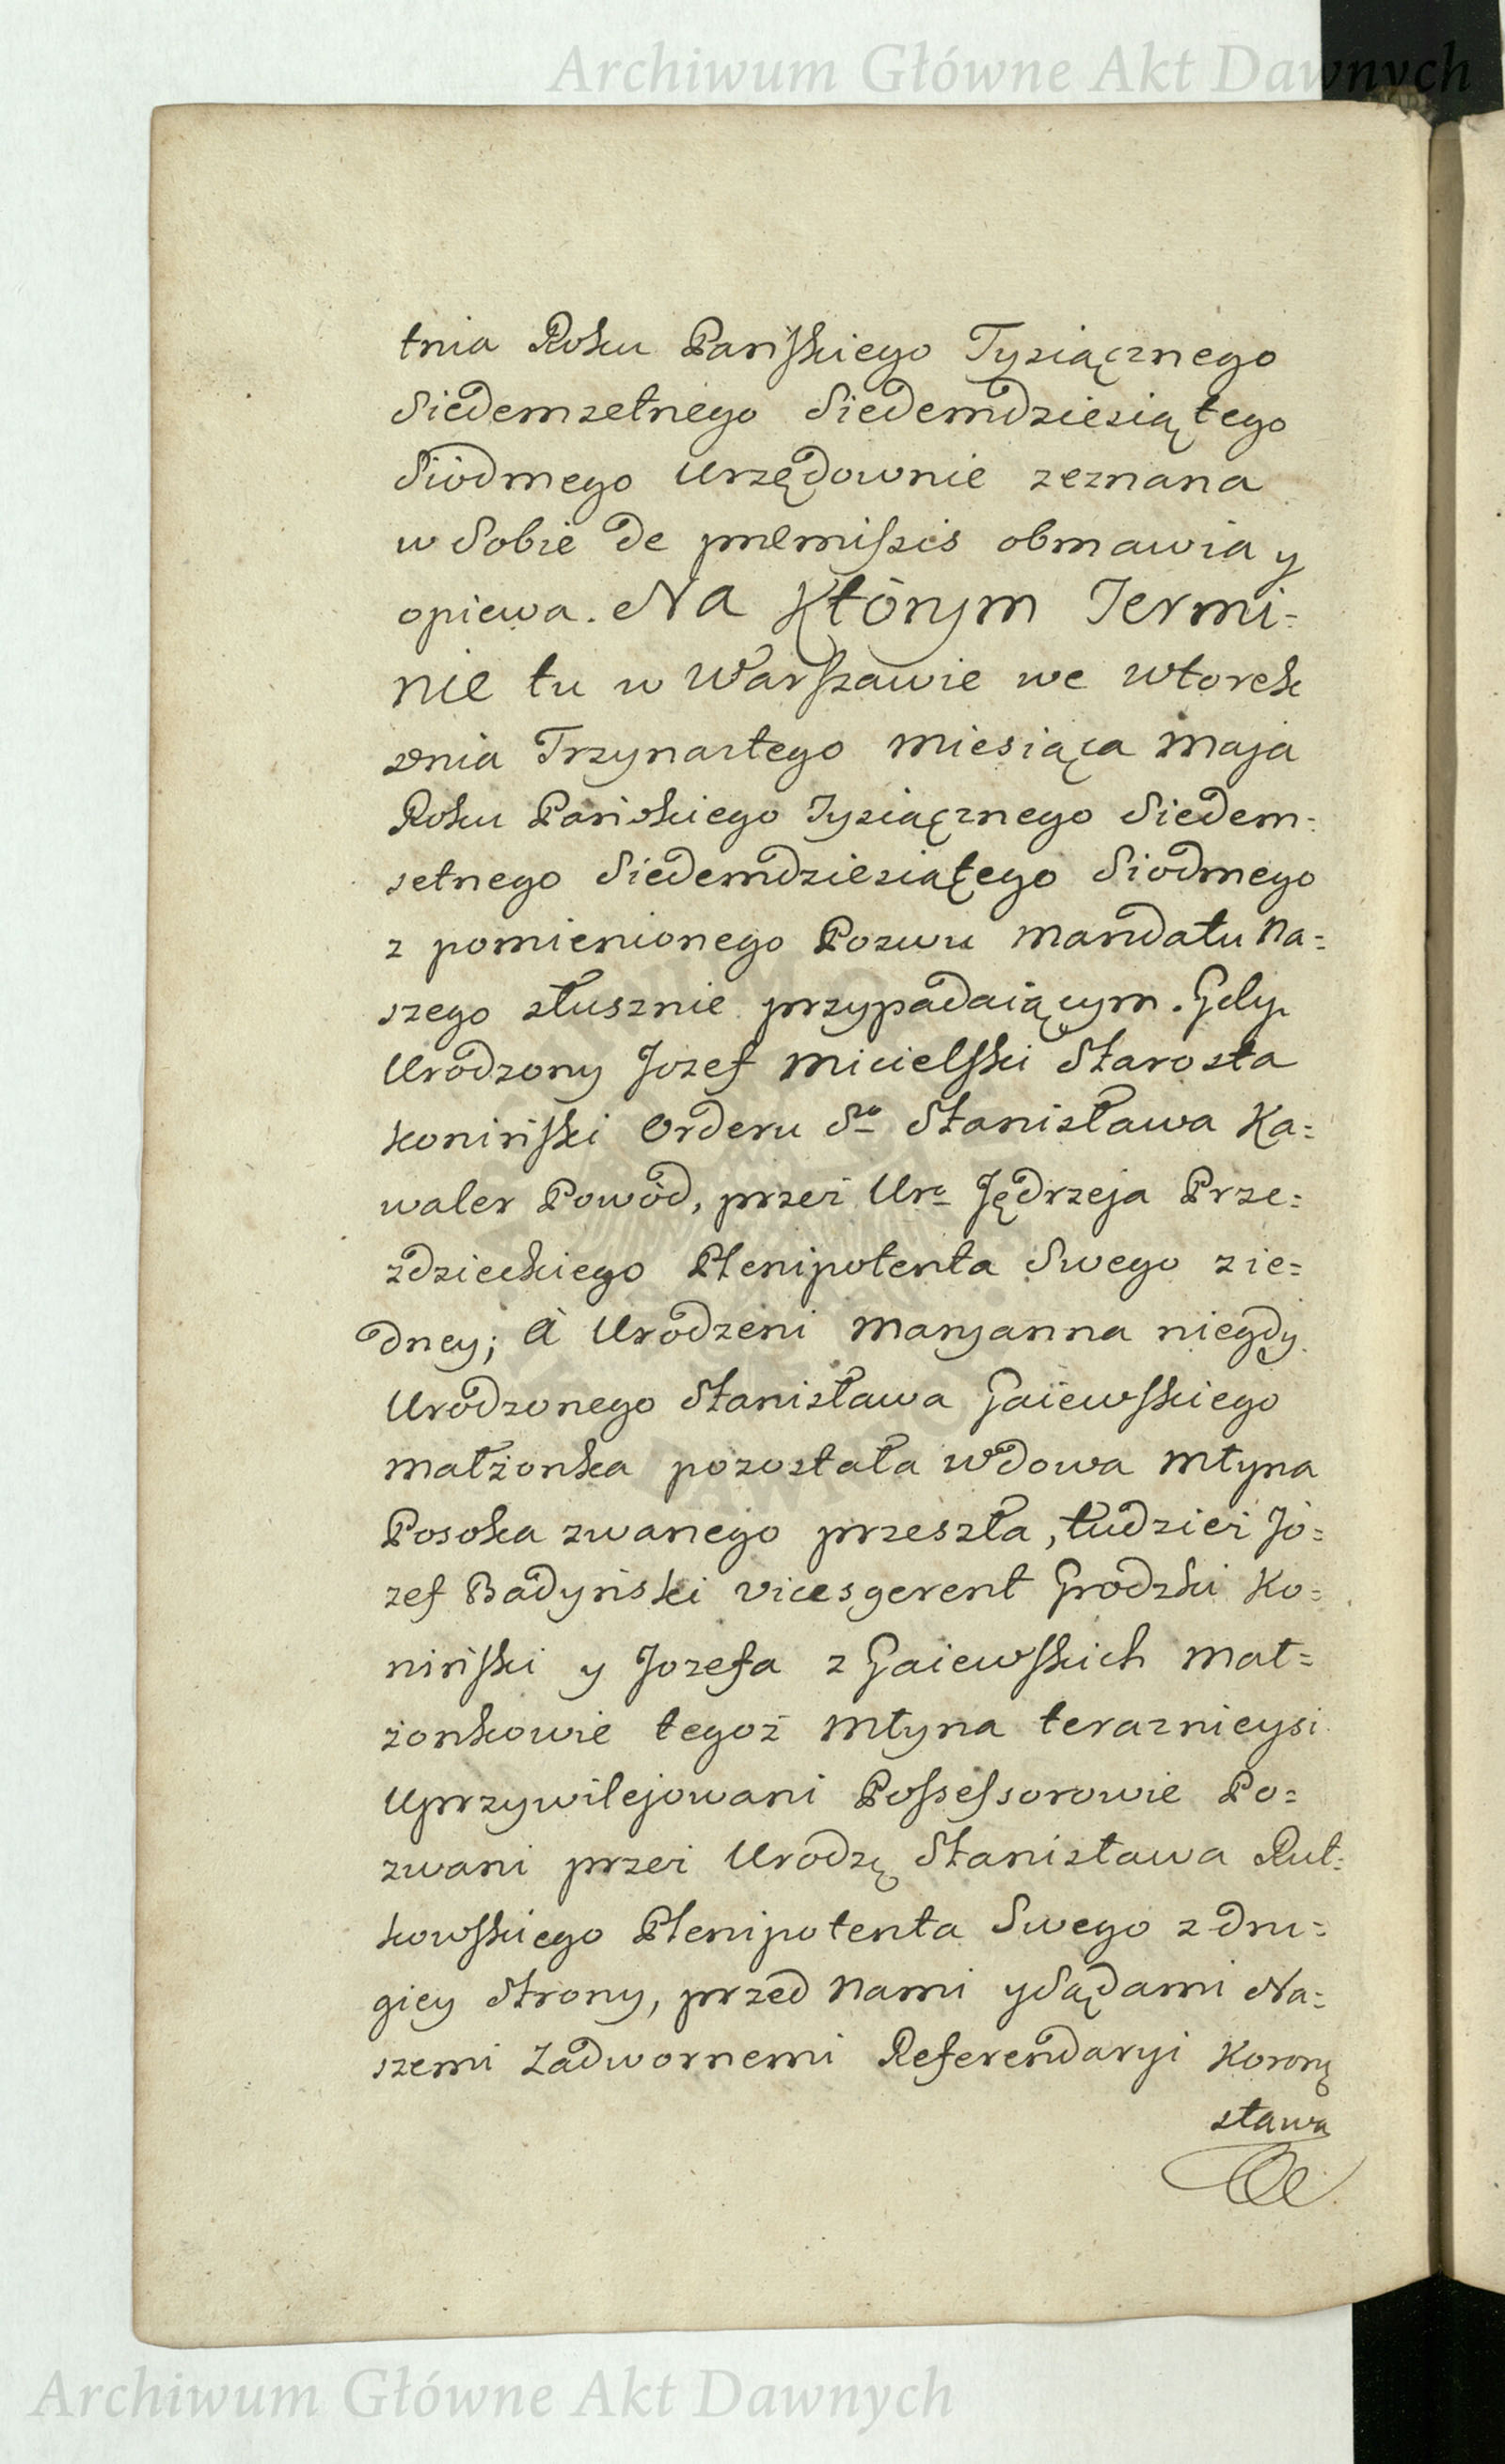 Archiwum Główne Akt Dawnych
tnia Roku Pańskiego Tysiącznego
Siedemsetnego Siedemdziesiątego
Siódmego Urzędownie zeznana
w Sobie de premissis obmawia y
opiewa. Na Którym Termi=
nie tu w Warszawie we Wtorek
dnia Trzynastego Miesiąca Maja
Roku Pańskiego Tysiącznego Siedem=
setnego Siedemdziesiątego Siodmego
z pomienionego Pozwu Mandatu Na=
szego słusznie przypadaiącym. Gdy
Urodzony Jozef Micielski Starosta
Koniński Orderu Sgo Stanisława Ka=
waler Powód, przez Urg Jędrzeja Prze=
zdzieckiego Plenipotenta Swego z ie=
dney; à Urodzeni Maryanna niegdy
Urodzonego Stanisława Gaiewskiego
małżonka pozostała Wdowa Młyna
Posoka zwanego przeszła, tudzież Jó=
zef Badyński Vicesgerent Grodzki Ko=
niński y Jozefa z Gaiewskich Mał=
żonkowie tegoż Młyna teraznieysi
Uprzywilejowani Possessorowie Po=
zwani przez Urodzę Stanisława Rut=
kowskiego Plenipotenta Swego z dru=
giey Strony, przed Nami y Sądami Na=
szemi Zadwornemi Referendaryi Korony
stawa
Archiwum Główne Akt Dawnych